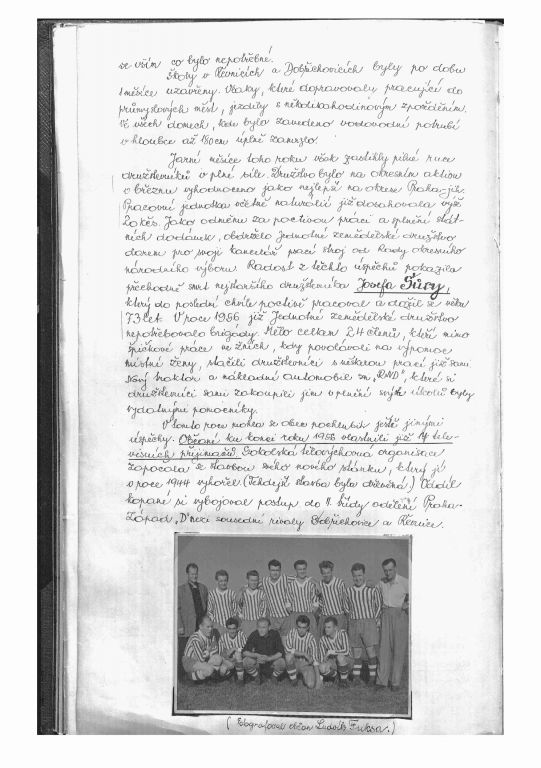 se vším co bylo nepotřebné.
Školy v Řevnicích a Dobřichovicích byly po dobu
1 měsíce uzavřeny. Vlaky, které dopravovaly pracující do
průmyslových měst, jezdily s několikahodinovým zpožděním.
Ve všech domech, kde bylo zavedeno vodovodní potrubí
v hloubce až 80 cm úplně zamrzlo.
Jarní měsíce toho roku však zastihly pilné ruce
družstevníků v plné síle. Družstvo bylo na okresním aktivu
v březnu vyhodnoceno jako nejlepší na okrese Praha-jih.
Pracovní jednotka včetně naturalií již dosahovala výše
20 Kčs. Jako odměnu za poctivou práci a splnění stát-
ních dodávek, obdrželo Jednotné zemědělské družstvo
darem pro svoji kancelář psací stroj od Rady okresního
národního výboru. Radost z těchto úspěchů pokazila
přechodně smrt nejstaršího družstevníka Josefa
který do poslední chvíle poctivě pracoval a dožil se věku
73 let. V roce 1956 již Jednotné zemědělské družstvo
nepotřebovalo brigády. Mělo celkem 24 členů, kteří mimo
špičkové práce ve žních, kdy povolávali na výpomoc
místní ženy, stačili družstevníci s veškerou prací již sami.
Nový traktor a nákladní automobil zn. „RND", které si
družstevníci sami zakoupili jim v plnění svých úkolů byly
vydatnými pomocníky.
V tomto roce mohla se obec pochlubit ještě jinými
úspěchy. Občané ku konci roku 1956 vlastnili již tele-
visních přijímačů. Sokolská tělovýchovná organisace
započala se stavbou svého nového stánku, který jí
v roce 1944 vyhořel (Tehdejší stavba byla dřevěná) Oddíl
kopané si vybojoval postup do II. třídy oddělení Praha-
Západ „D" mezi sousední rivaly Dobřichovice a Řevnice.
(Fotografoval občan Ludvík Fuksa.)